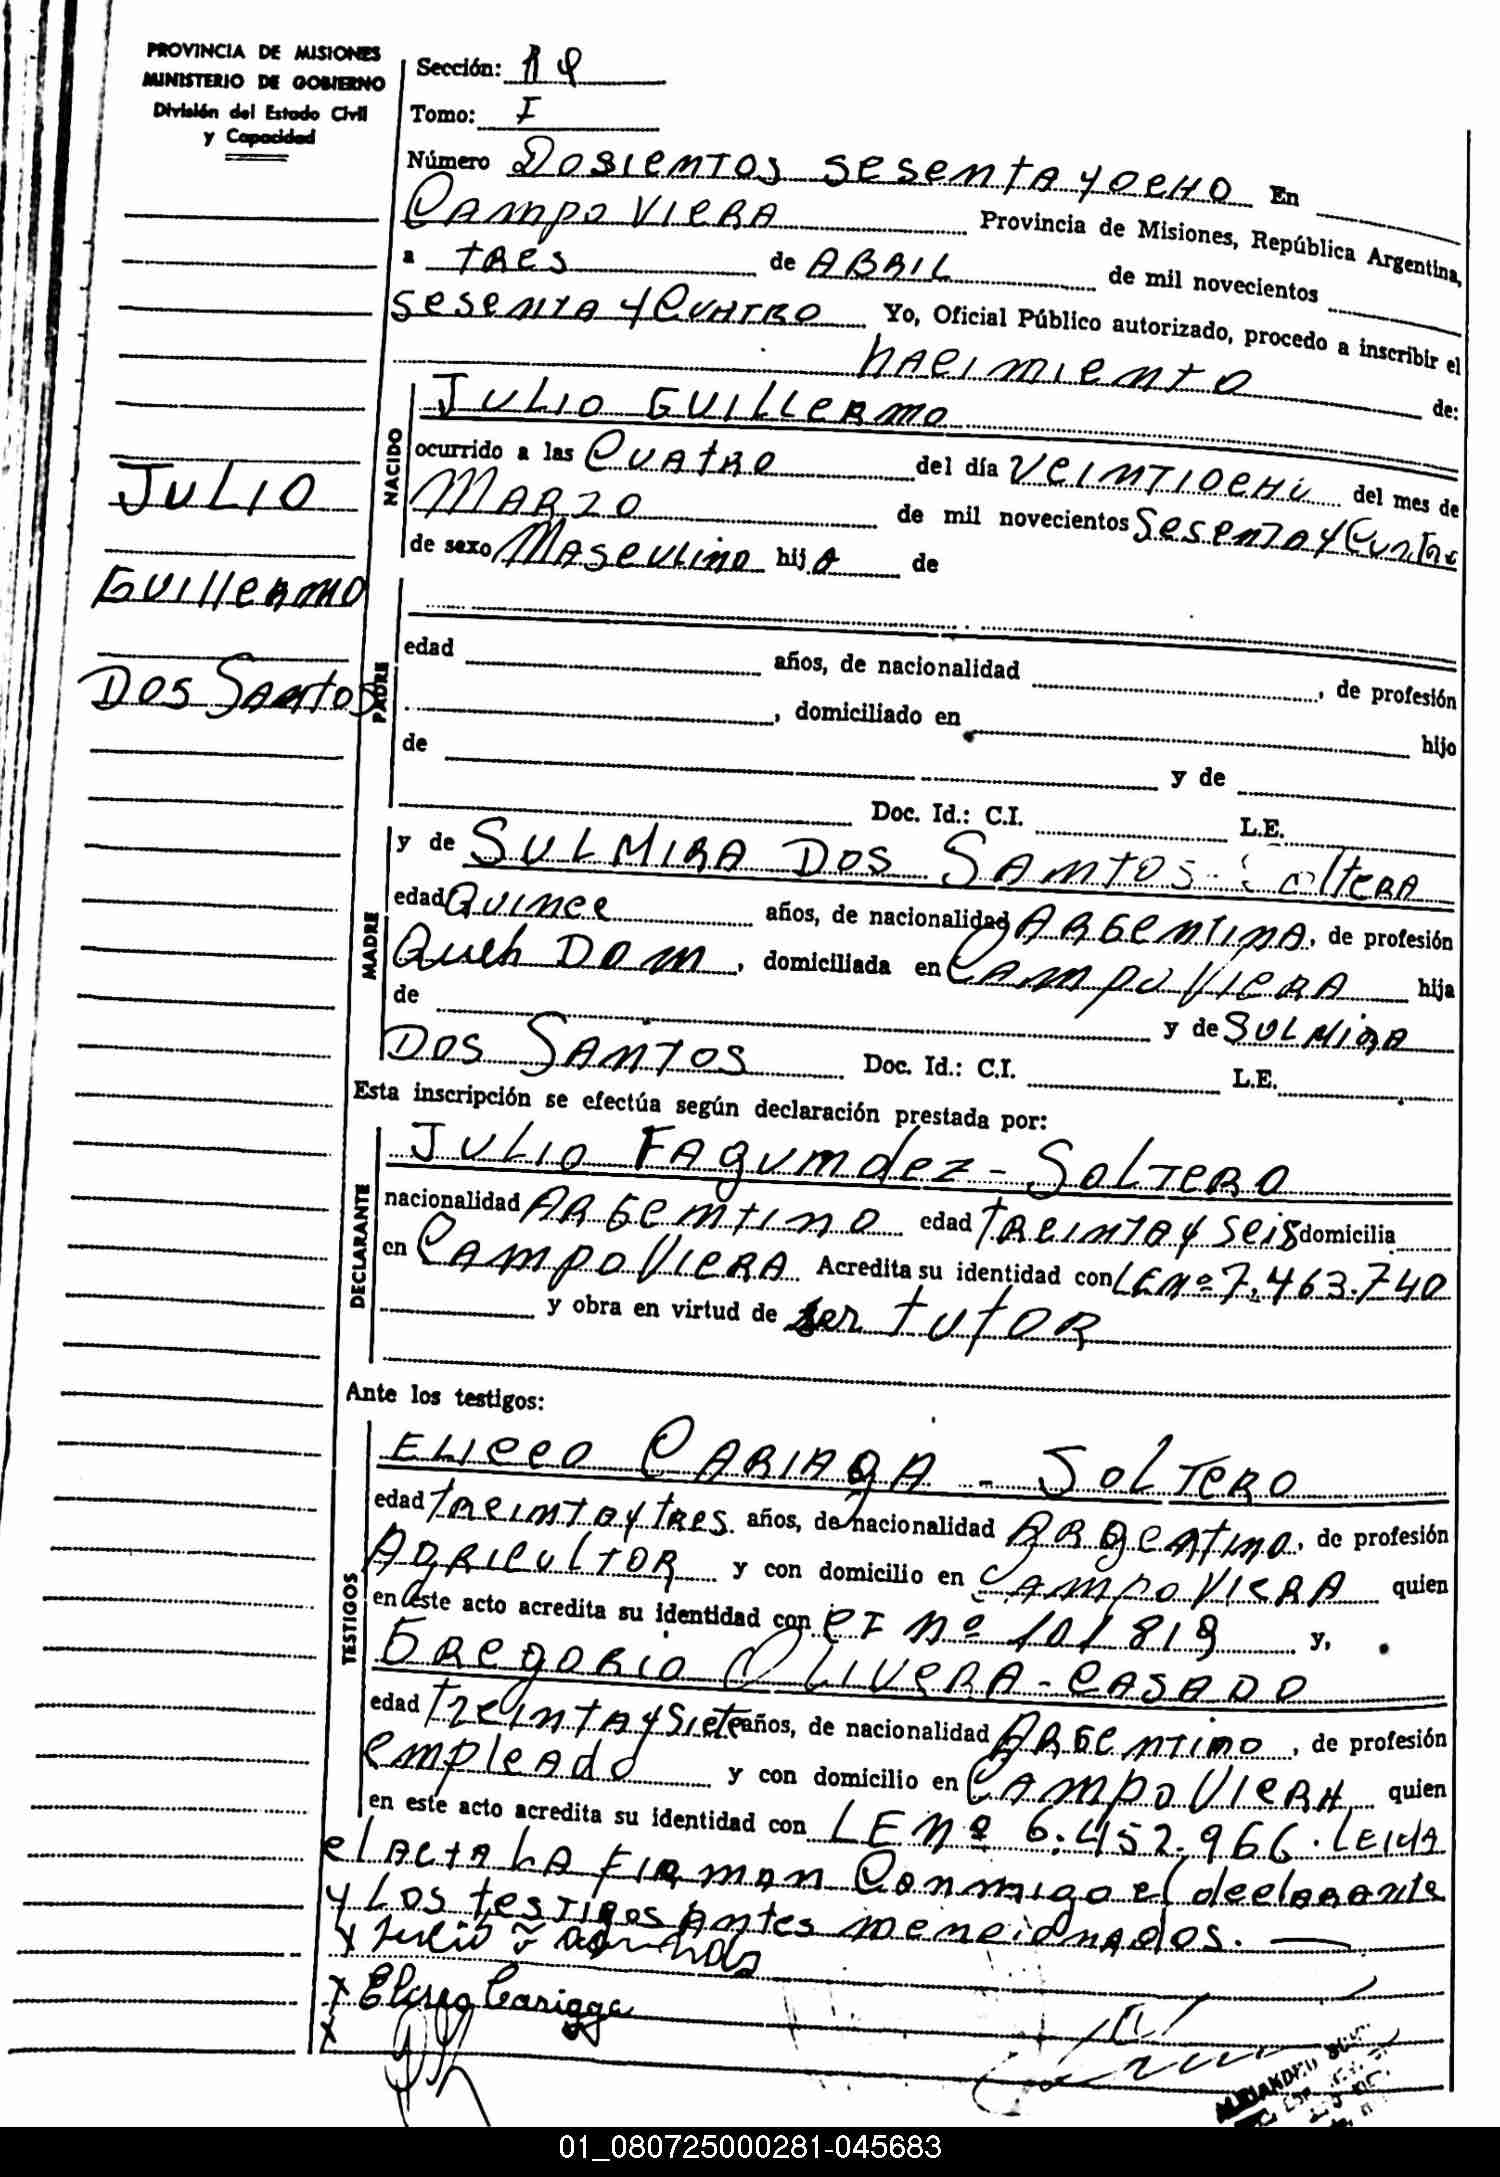 PROVINCIA DE MISIONES
MINISTERIO DE GOBIERNO
División del Estado Civil
y Capacidad
JULIO
GUILLERMO
DOS SANTOS
Sección:
Tomo: I
Número DOSIENTOS SESENTA Y OCHO En
CAMPO VIERA Provincia de Misiones, República Argentina,
a TRES de ABRIL de mil novecientos
SESENTA Y CUATRO Yo, Oficial Público autorizado, procedo a inscribir el
NACIMIENTO de:
NACIDO
JULIO GUILLERMO
ocurrido a las CUATRO del día VEINTIOCHO del mes de
MARZO de mil novecientos SESENTA Y CUATRO
de sexo MASCULINO hijo de
PADRE
edad años, de nacionalidad , de profesión
, domiciliado en hijo
de y de
Doc. Id.: C.I. L.E.
MADRE
y de SULMIRA DOS SANTOS - SOLTERA
edad QUINCE años, de nacionalidad ARGENTINA, de profesión
QUEH DOM, domiciliada en CAMPO VIERA hija
de y de SULMIRA
DOS SANTOS Doc. Id.: C.I. L.E.
Esta inscripción se efectúa según declaración prestada por:
DECLARANTE
JULIO FAGUNDEZ - SOLTERO
nacionalidad ARGENTINO edad TREINTA Y SEIS domicilia
en CAMPO VIERA Acredita su identidad con LE Nº 7.463.740
y obra en virtud de ser TUTOR
Ante los testigos:
TESTIGOS
ELICEO CARIAGA - SOLTERO
edad TREINTA Y TRES años, de nacionalidad ARGENTINO, de profesión
AGRICULTOR y con domicilio en CAMPO VIERA quien
en este acto acredita su identidad con CI Nº 101819 y,
GREGORIO OLIVERA - CASADO
edad TREINTA Y SIETE años, de nacionalidad ARGENTINO, de profesión
EMPLEADO y con domicilio en CAMPO VIERA, quien
en este acto acredita su identidad con LE Nº 6.452.966. LEIDA
el ACTA LA FIRMAN CONMIGO el declarante
y LOS TESTIGOS ANTES MENCIONADOS.
x Julio
x Eliseo Cariaga
x
ALEJANDRO
01_080725000281-045683